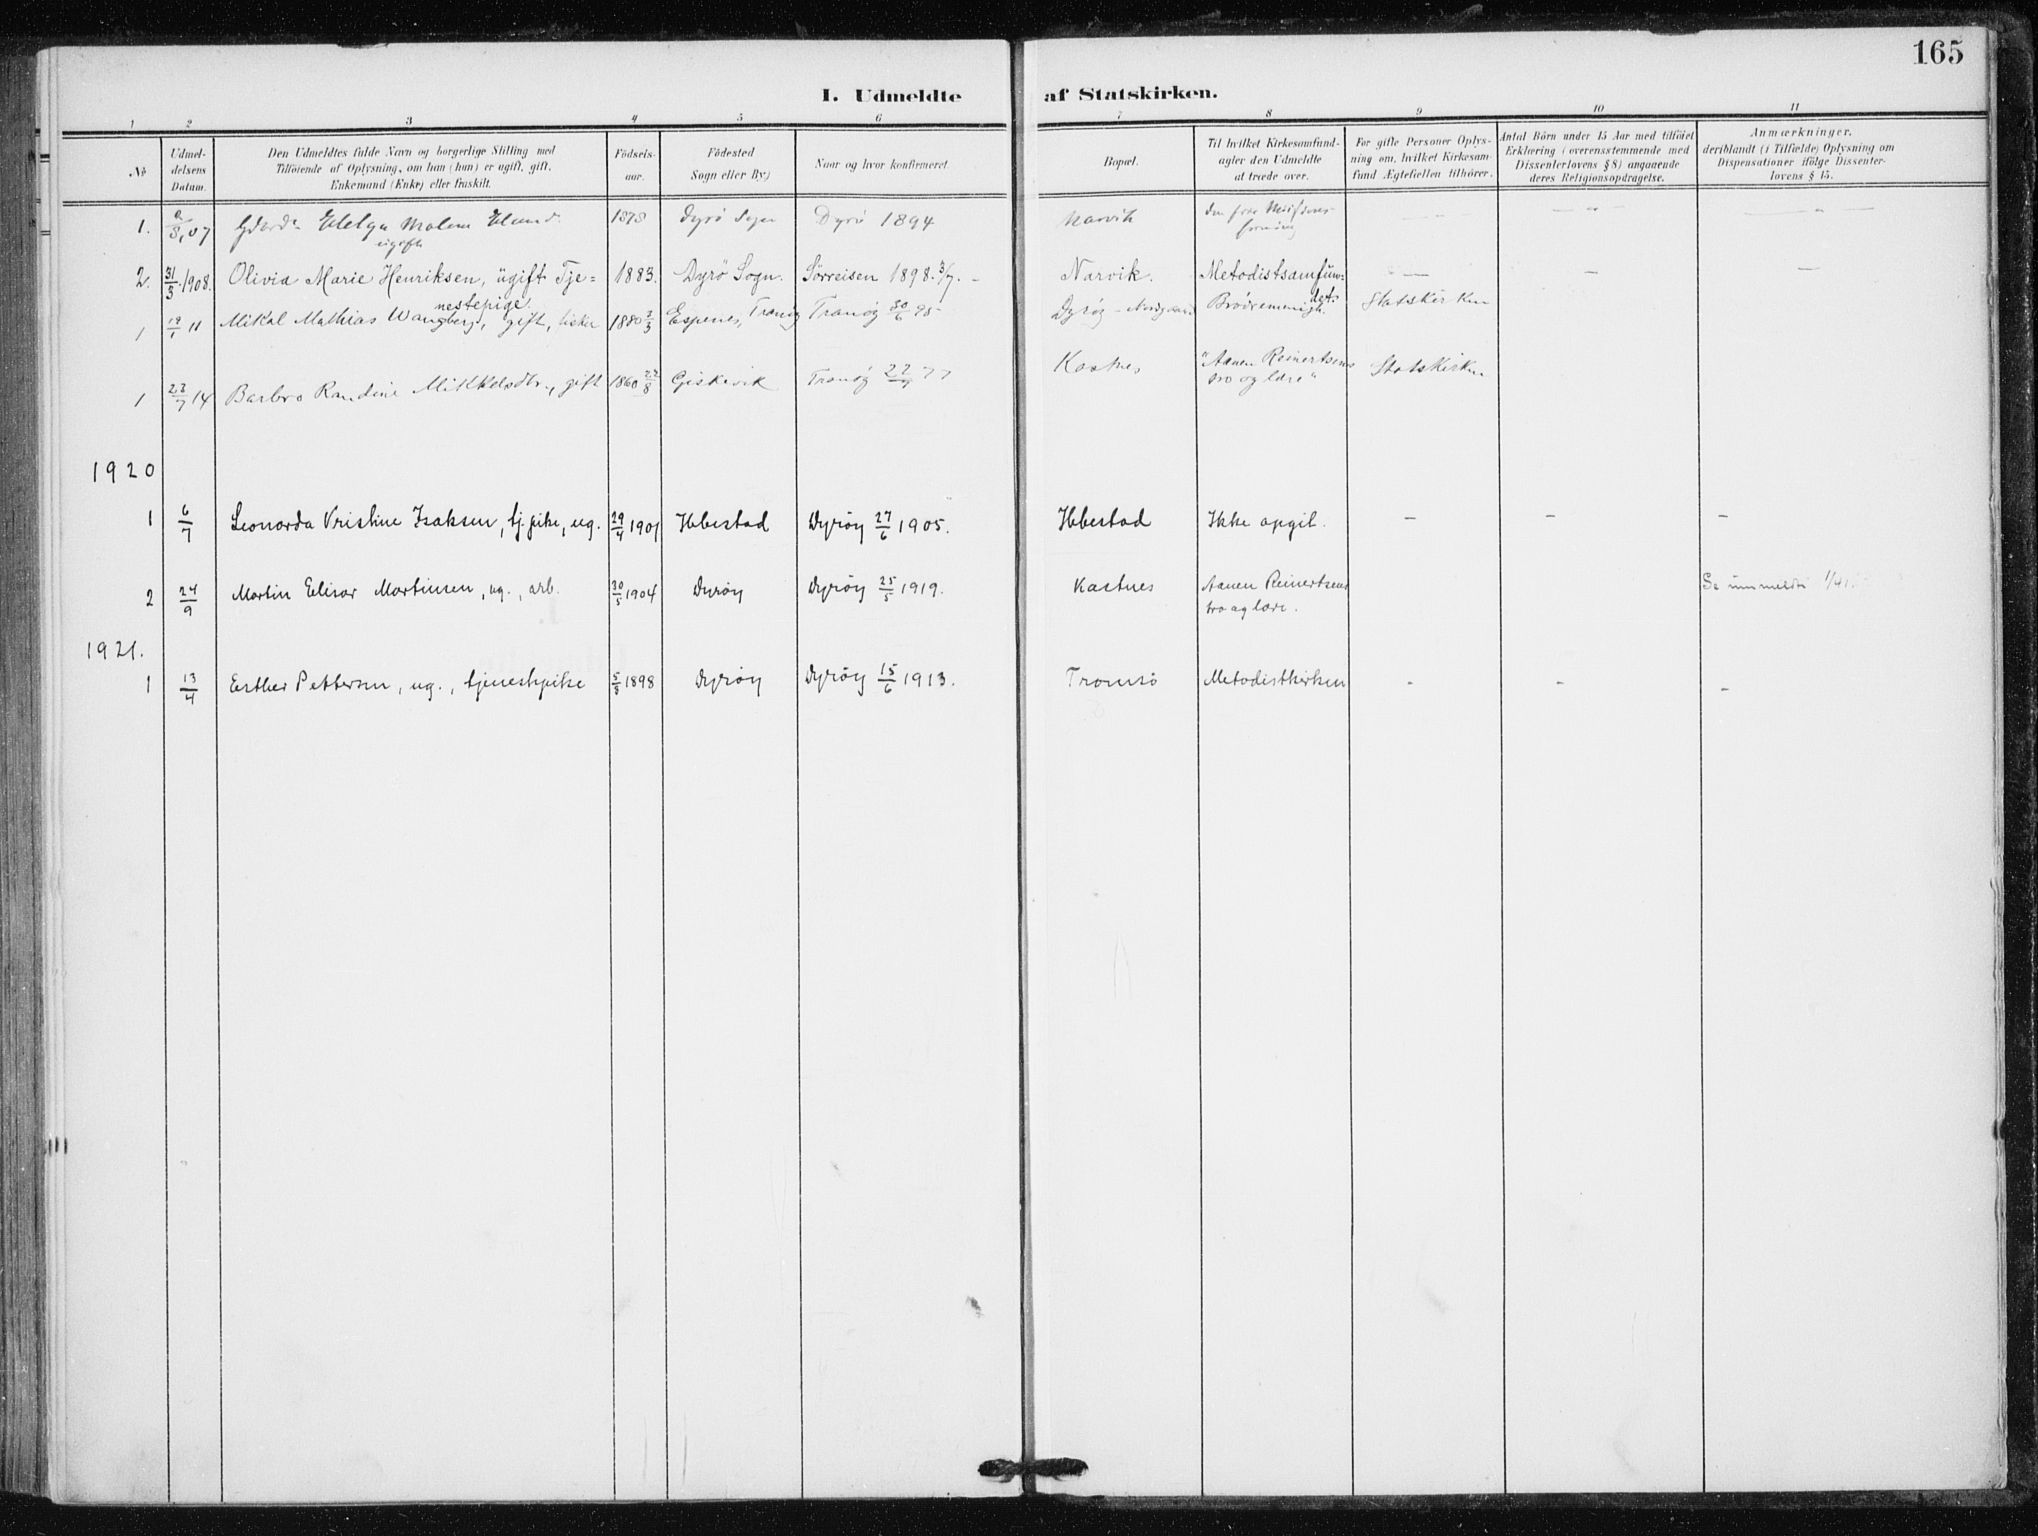 165
I. Udmeldte af Statskirken.
1 2 3 4 5 6 7 8 9 10 11
№
Udmel-
delsens
Datum.
Den Udmeldtes fulde Navn og borgerlige Stilling med
Tilföiende af Oplysning, om han (hun) er ugift, gift,
Enkemand (Enke) eller fraskilt.
Födsels-
aar.
Födested
Sogn eller By)
Naar og hvor konfirmeret.
Bopæl.
Til hvilket Kirkesamfund-
agter den Udmeldte
at træde over.
For gifte Personer Oplys-
ning om, hvilket Kirkesam-
fund Ægtefællen tilhörer.
Antal Börn under 15 Aar med tilföiet
Erklæring (overensstemmende med
Dissenterlovens § 8) angaaende
deres Religionsopdragelse.
Anmærkninger,
deriblandt (i Tilfælde) Oplysning om
Dispensationer ifölge Dissenter-
lovens § 15.
1. 07 1878 Dyrö Sogn Dyrö 1894 Narvik den frie
ugift
2. 31/3 1908. Olivia Marie Henriksen, ugift Tje= 1883. Dyrö Sogn. Sörreisen 1898. 3/7. - Narvik. Metodistsamfun= - - -
nestepige. dets
1 19/1 11 Mikal Mathias Wangberg, gift, fisker 1880 3/3 Espenes, Tranöy Tranöy 30/6 95 Dyröy - Nordgaard Brödremenigh. Statskirken
1 23/7 14 Barbro Randine Mikkelsdtr., gift 1860 22/8 Giskevik Tranöy 22/7 77 Kastnes "Aanen Reinertsens Statskirken
tro og lære"
1920
1 6/7 Leonarda Kristine Isaksen, tj.pike, ug. 29/4 1901 Ibbestad Dyröy 27/6 1905. Ibbestad Ikke opgit. - - -
2 24/9 Martin Elisar Martinsen, ug., arb. 30/5 1904 Dyröy Dyröy 25/5 1919. Kastnes Aanen Reinertsens Se innmeldte 1/4
tro og lære.
1921.
1 13/4 Esther Pettersen, ug., tjenestepike 5/8 1898 Dyröy Dyröy 15/6 1913. Tromsö Metodistkirken - - -